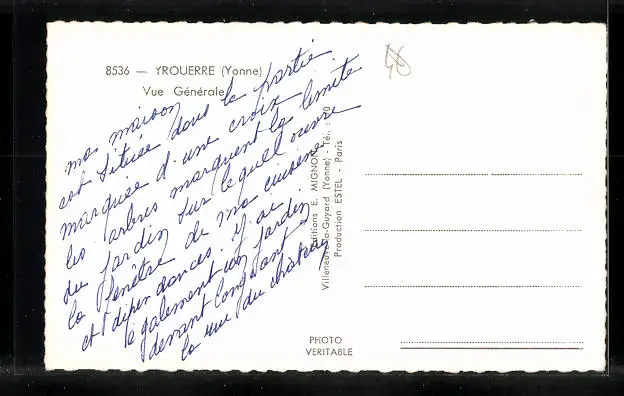 8536 — YROUERRE (Yonne)
Vue Générale
ma maison
est située dans la partie
marquée d'une croix
les arbres marquent la limite
du jardin sur lequel ouvre
la fenêtre de ma cuisine
et dépendances. J'ai
également un jardin
devant longeant
la rue du château
Editions E. MIGNON
Villeneuve-la-Guyard (Yonne) - Tél. : 20
Production ESTEL - Paris
PHOTO
VERITABLE